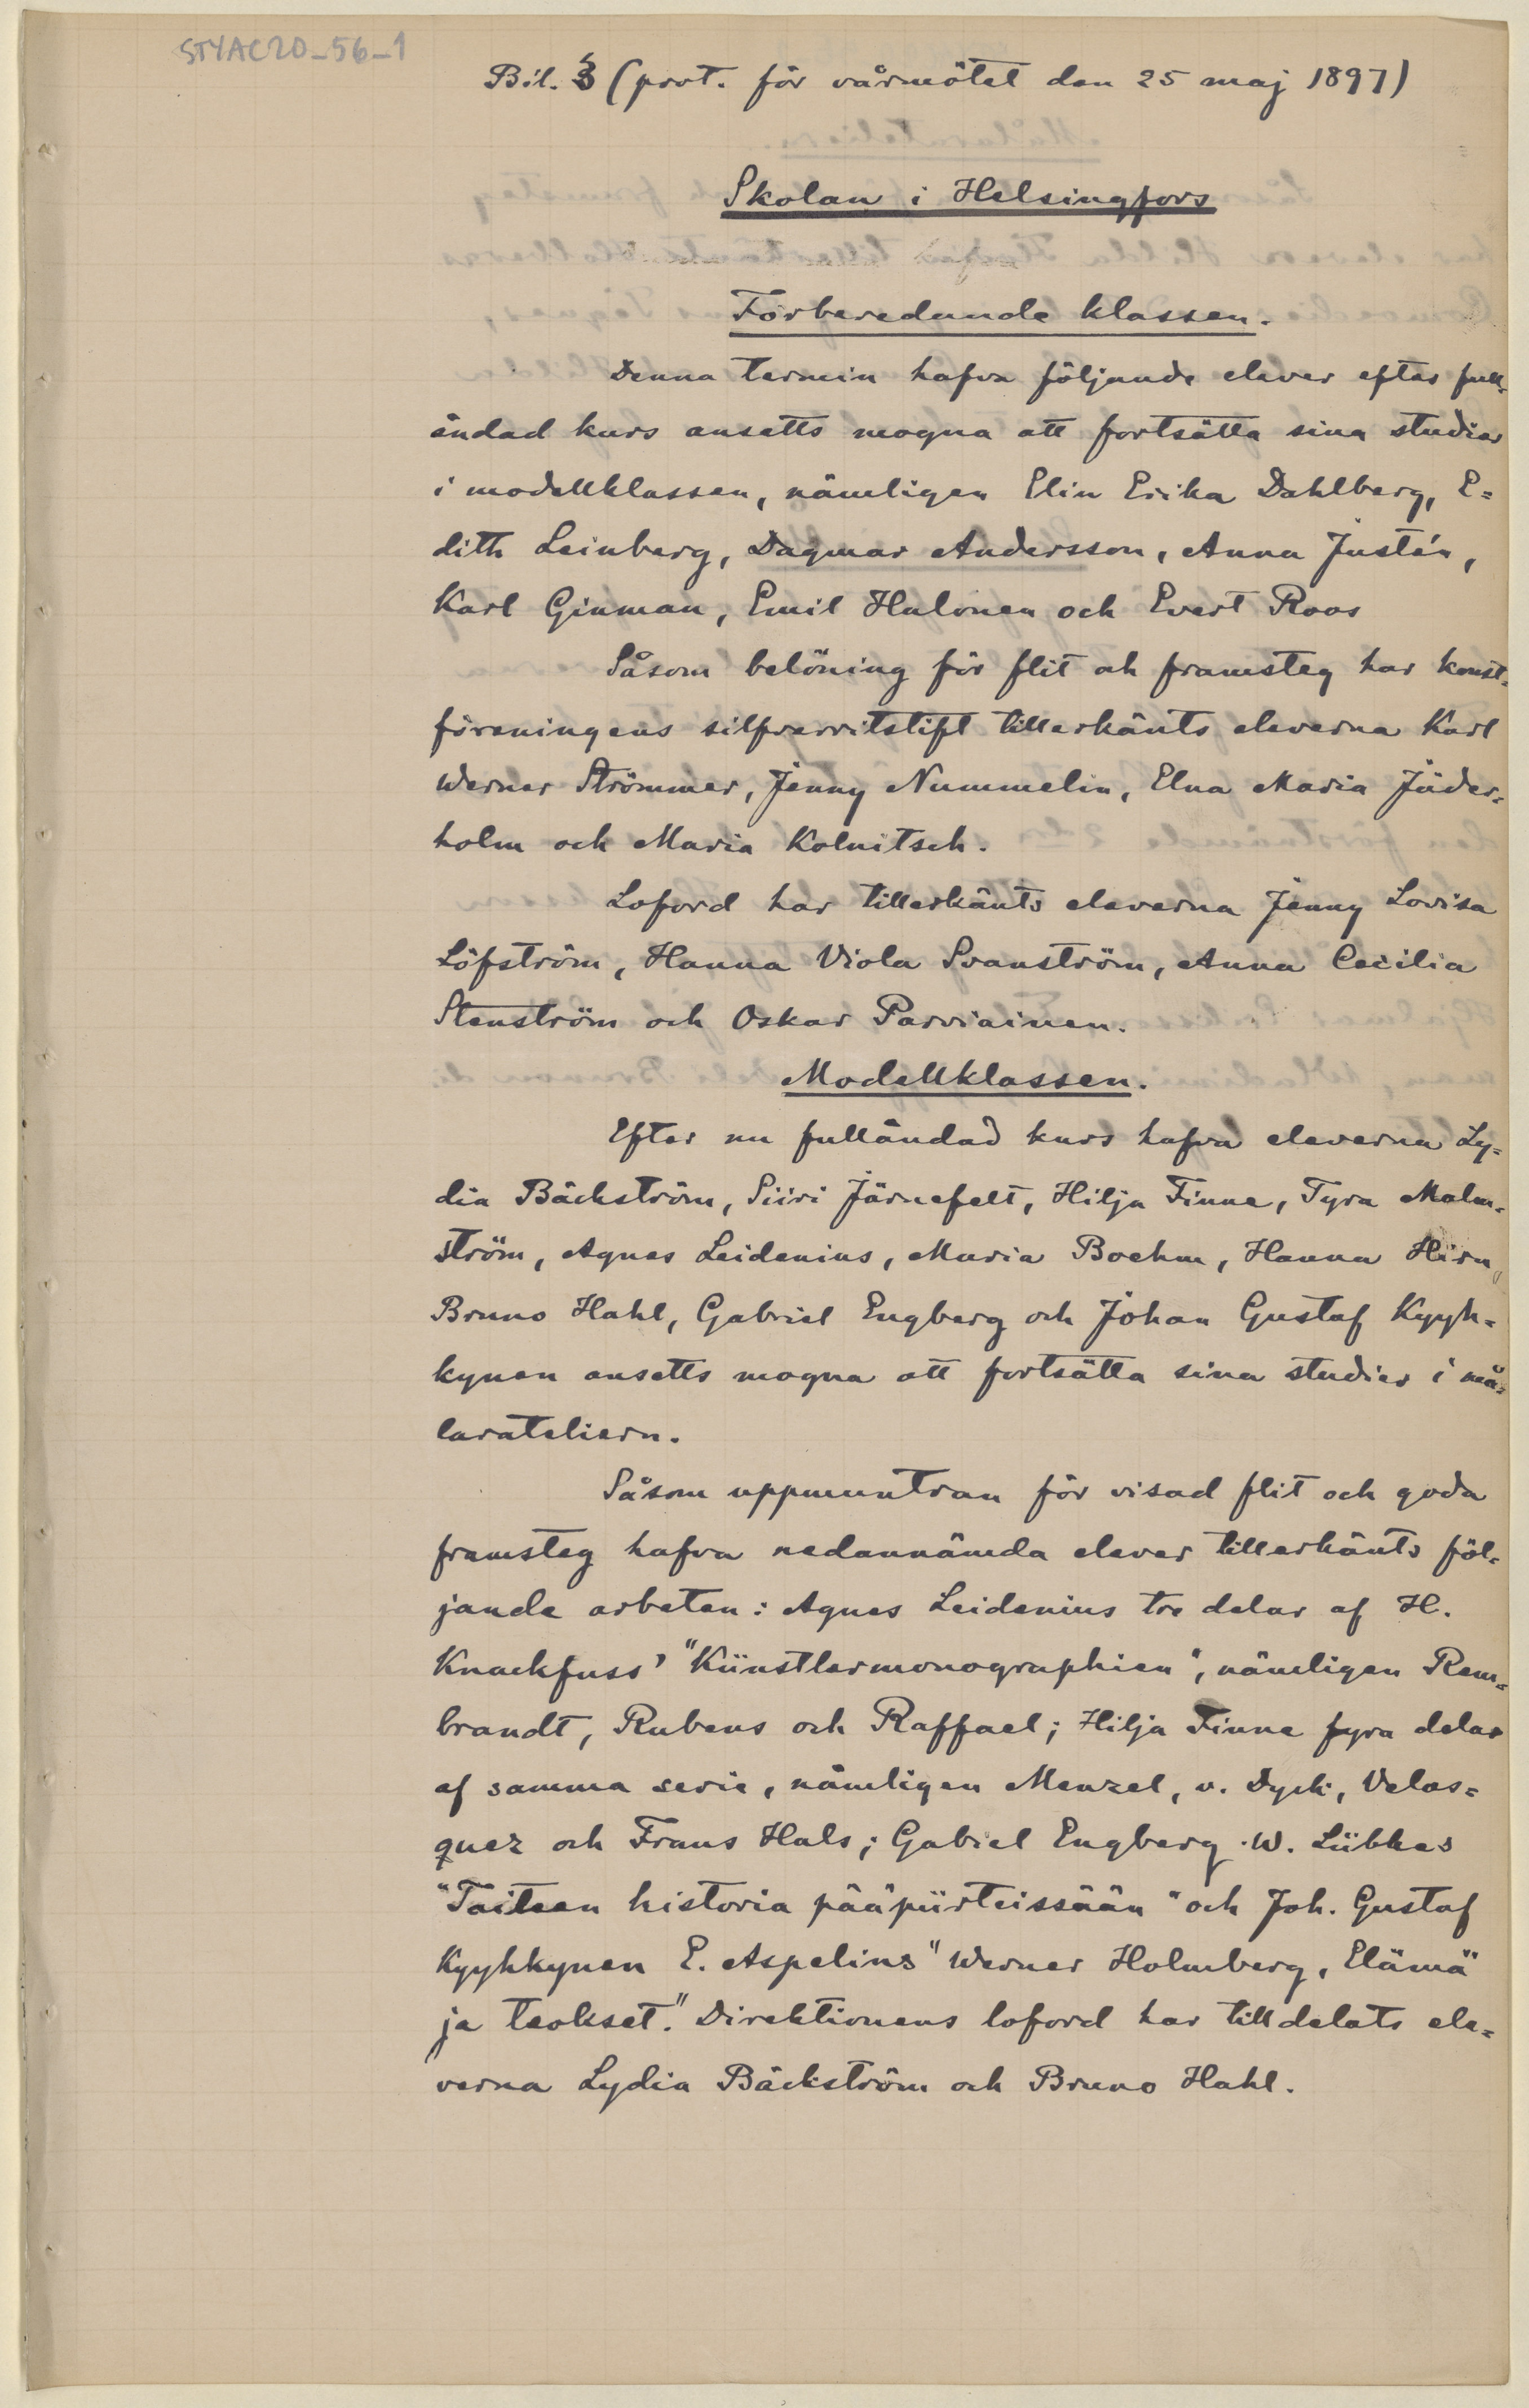 STYAC20_56_1
Bil. 3 (prot. för vårmötet den 25 maj 1897)
Skolan i Helsingfors
Förberedande klassen.
Denna termin hafva följande elever efter full-
ändad kurs ansetts mogna att fortsätta sina studier
i modellklassen, nämligen Elin Erika Dahlberg, E=
dith Leinberg, Dagmar Andersson, Anna Justén,
Karl Ginman, Emil Halonen och Evert Roos
Såsom belöning för flit och framsteg har konst-
föreningens silfverritstift tillerkänts eleverna Karl
Werner Strömmer, Jenny Nummelin, Elna Maria Jäder-
holm och Maria Kolnitsch.
Loford har tillerkänts eleverna Jenny Lovisa
Löfström, Hanna Viola Svanström, Anna Cecilia
Stenström och Oskar Parviainen.
Modellklassen.
Efter nu fulländad kurs hafva eleverna Ly=
dia Bäckström, Siiri Järnefelt, Hilja Finne, Tyra Malm-
ström, Agnes Leidenius, Maria Boehm, Hanna Hirn,
Bruno Hahl, Gabriel Engberg och Johan Gustaf Kyyh-
kynen ansetts mogna att fortsätta sina studier i må-
larateliern.
Såsom uppmuntran för visad flit och goda
framsteg hafva nedannämda elever tillerkänts föl-
jande arbeten: Agnes Leidenius tre delar af H.
Knackfuss' "Künstlermonographien", nämligen Rem-
brandt, Rubens och Raffael; Hilja Finne fyra delar
af samma serie, nämligen Menzel, v. Dyck, Velas=
quez och Frans Hals; Gabriel Engberg W. Lübkes
"Taiteen historia pääpiirteissään" och Joh. Gustaf
Kyyhkynen E. Aspelins "Werner Holmberg, Elämä
ja teokset." Direktionens loford har tilldelats ele=
verna Lydia Bäckström och Bruno Hahl.